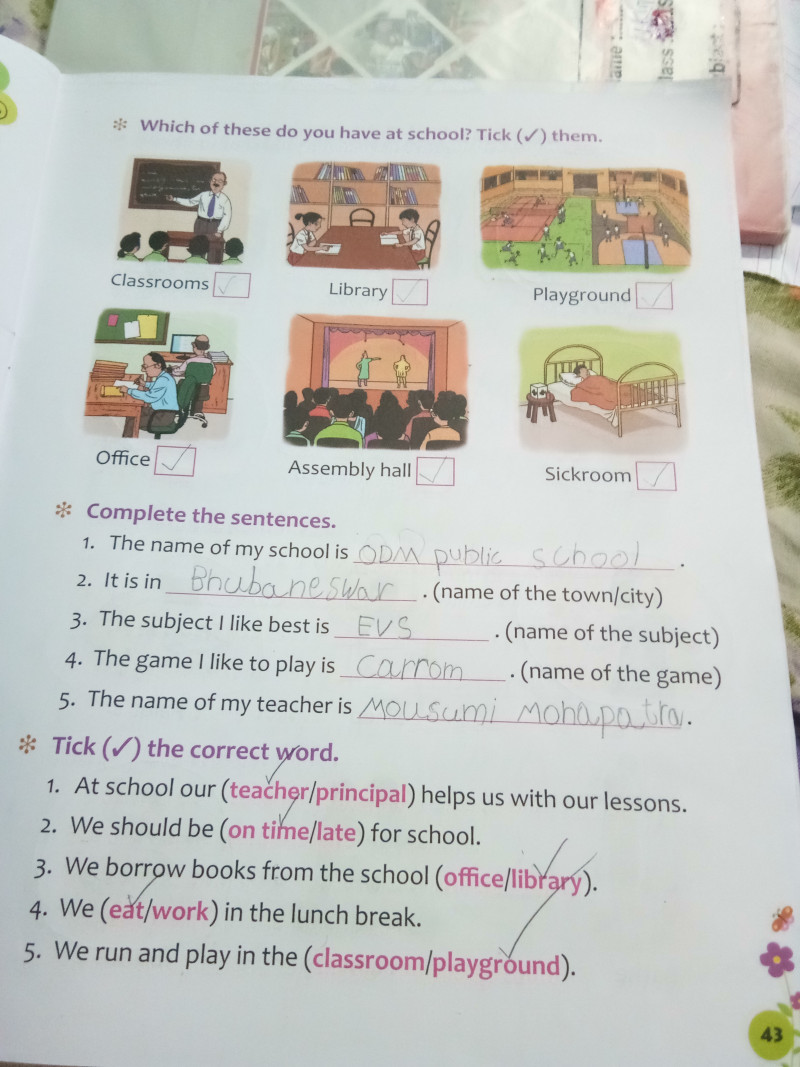 ame :
lass :
bject
* Which of these do you have at school? Tick (✓) them.
Classrooms ✓
Library ✓
Playground ✓
Office ✓
Assembly hall ✓
Sickroom ✓
* Complete the sentences.
1. The name of my school is ODM public school.
2. It is in Bhubaneswar. (name of the town/city)
3. The subject I like best is EVS. (name of the subject)
4. The game I like to play is Carrom. (name of the game)
5. The name of my teacher is Mousumi Mohapatra.
* Tick (✓) the correct word.
1. At school our (teacher/principal) helps us with our lessons.
2. We should be (on time/late) for school.
3. We borrow books from the school (office/library).
4. We (eat/work) in the lunch break.
5. We run and play in the (classroom/playground).
43